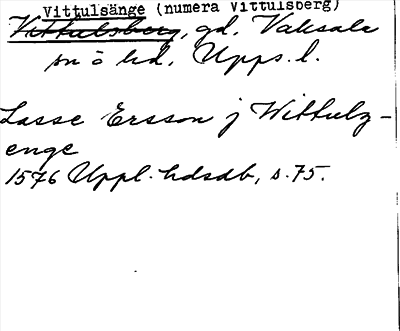 Vittulsänge (numera Vittulsberg)
Vittulsberg, gd, Vaksala
sn o hd, Upps. l.
Lasse Ersson j Wittulz-
enge
1576 Uppl. hdsdb, s. 75.